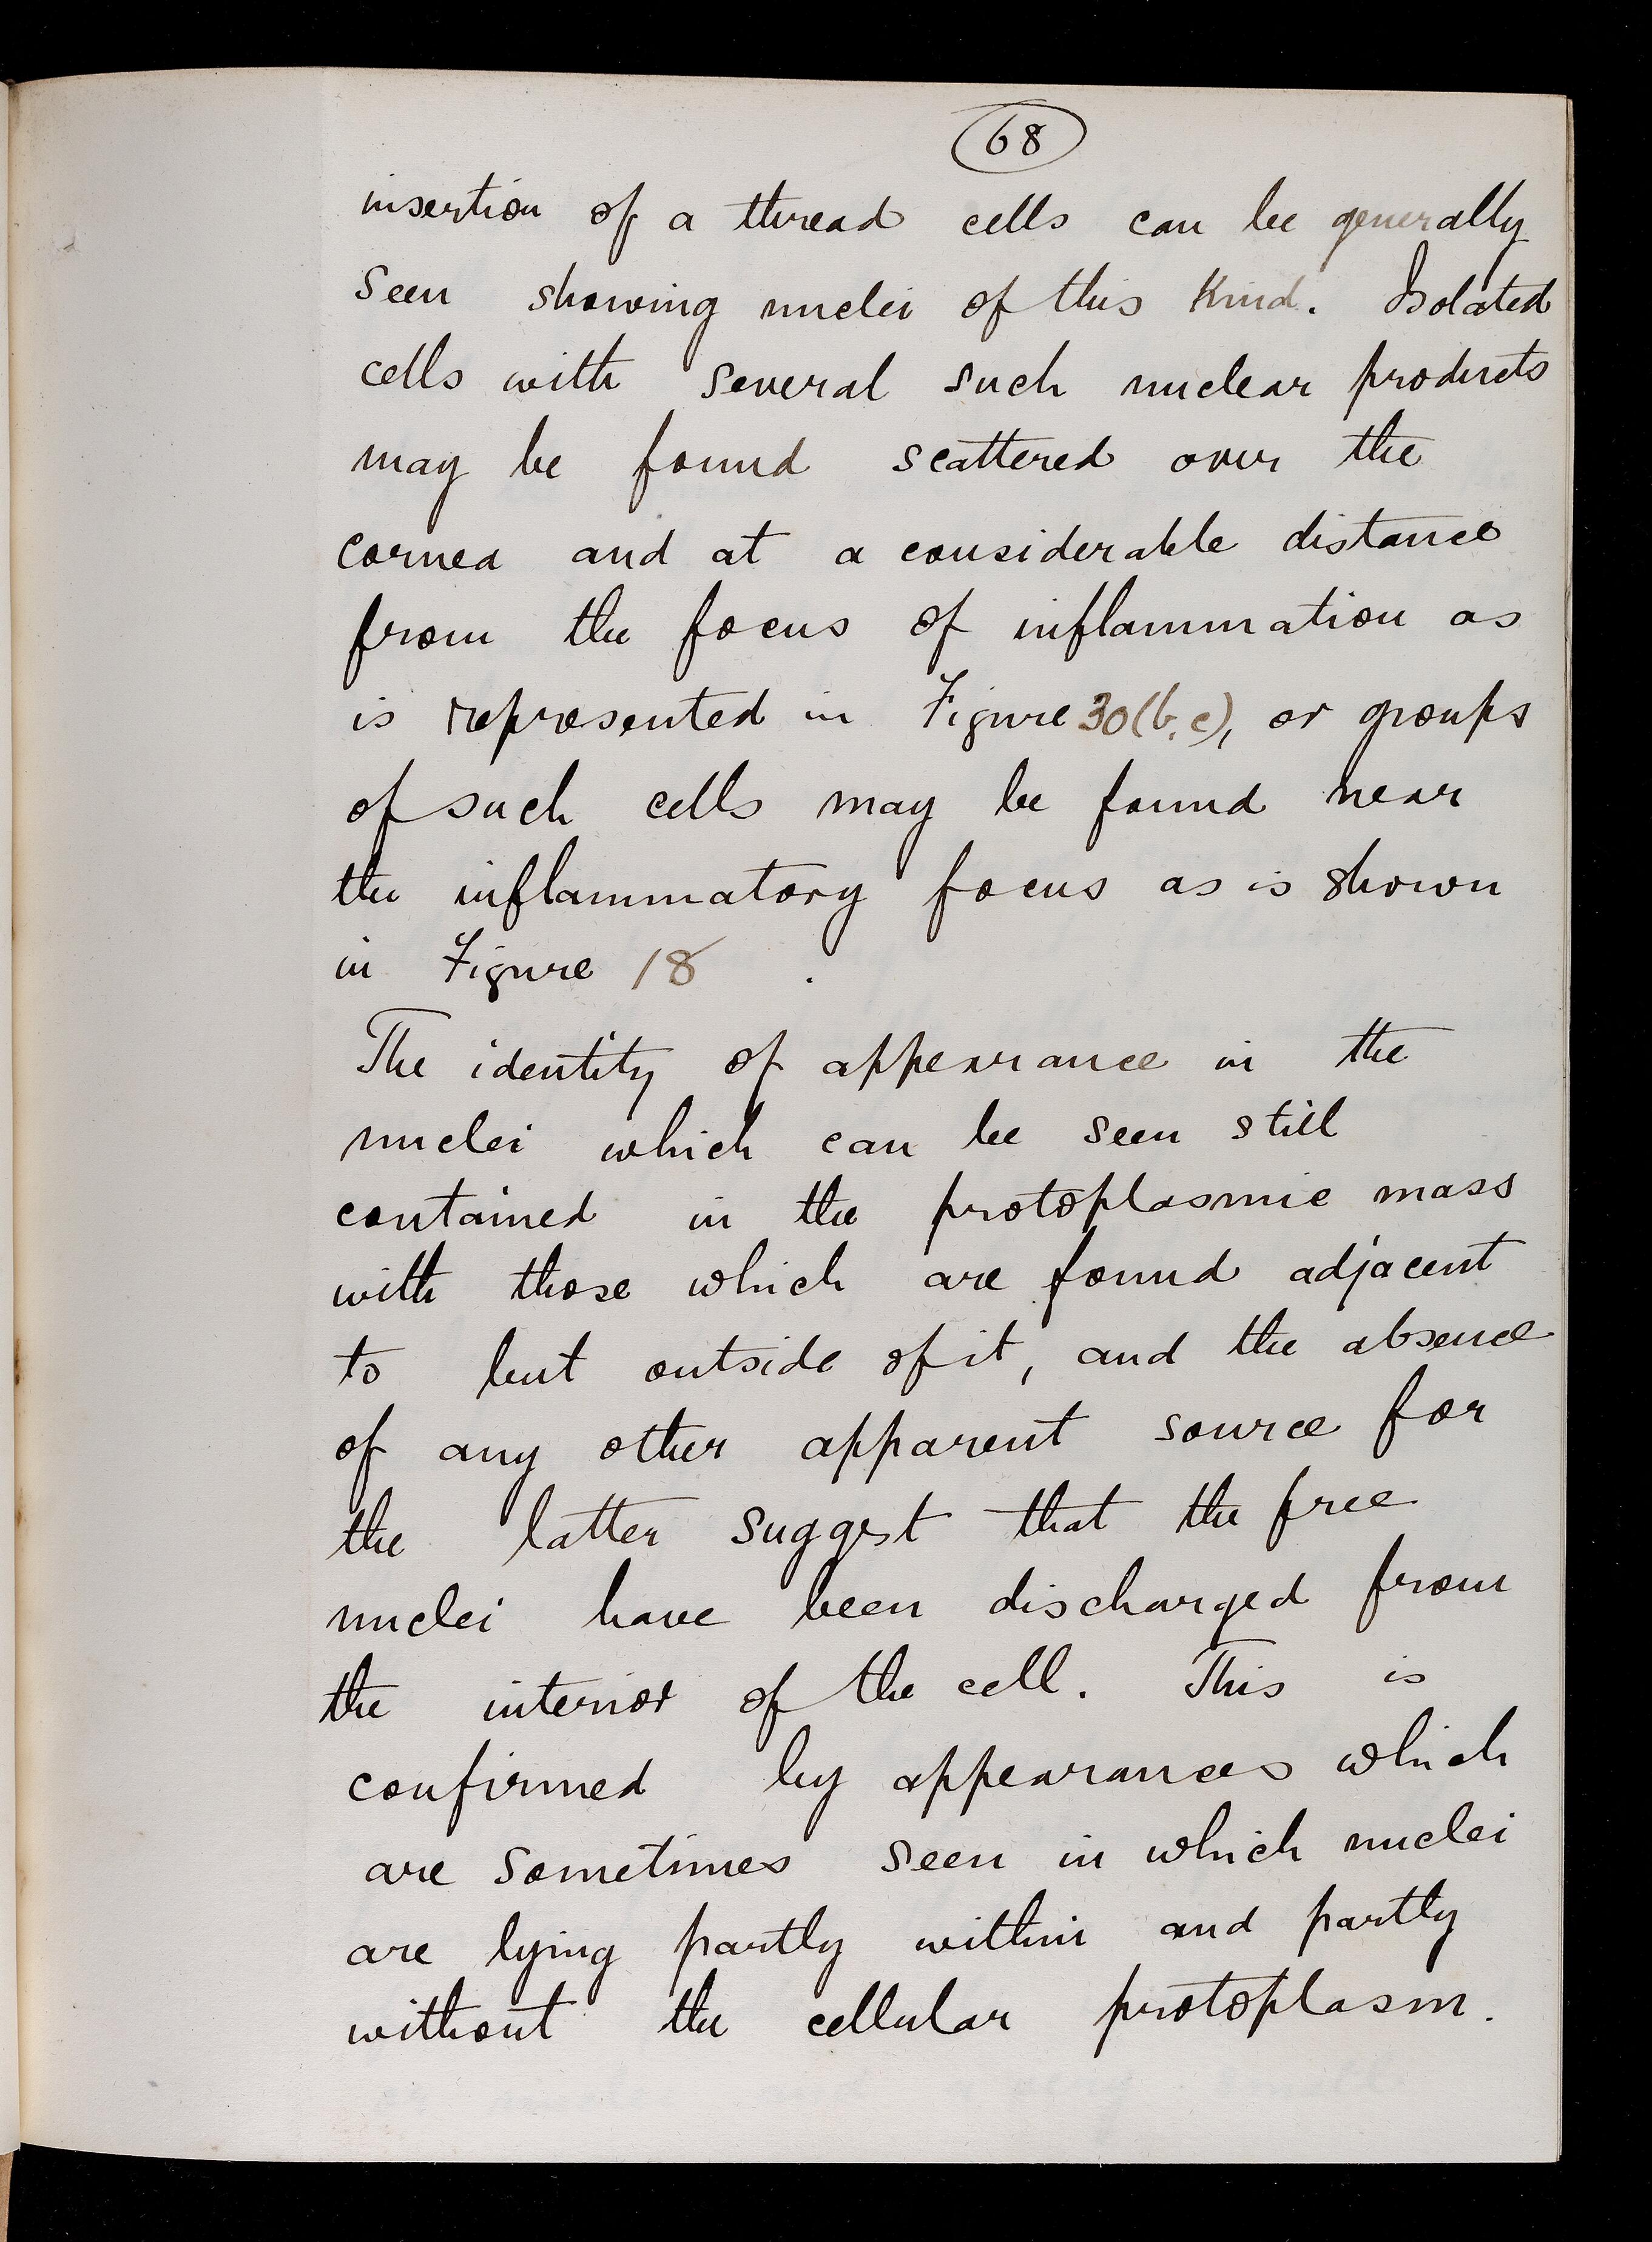 68
insertion of a thread cells can be generally
seen showing nuclei of this kind. Isolated
cells with several such nuclear products
may be found scattered over the
cornea and at a considerable distance
from the focus of inflammation as
is represented in Figure 30(b,c), or groups
of such cells may be found near
the inflammatory focus as is shown
in Figure 18 .
The identity of appearance in the
nuclei which can be seen still
contained in the protoplasmic mass
with those which are found adjacent
to but outside of it, and the absence
of any other apparent source for
the latter suggest that the free
nuclei have been discharged from
the interior of the cell. This is
confirmed by appearances which
are sometimes seen in which nuclei
are lying partly within and partly
without the cellular protoplasm.